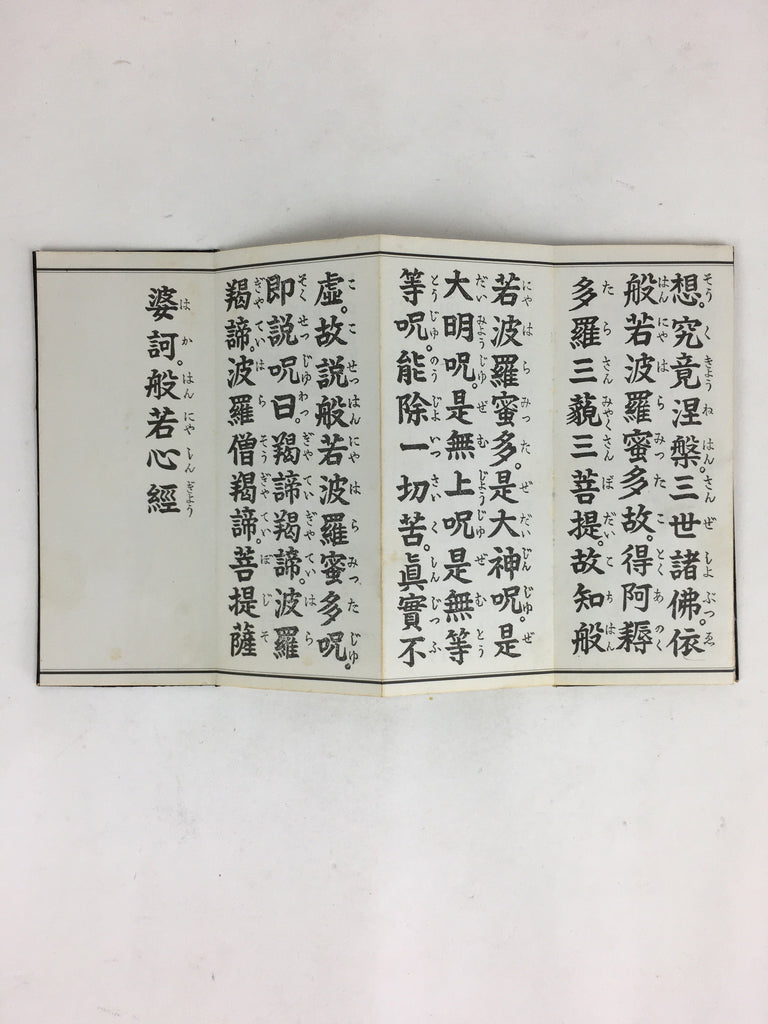 想。究竟涅槃。三世諸佛。依
般若波羅蜜多故。得阿耨
多羅三藐三菩提。故知般
若波羅蜜多。是大神呪。是
大明呪。是無上呪是無等
等呪。能除一切苦。眞實不
虛。故説般若波羅蜜多呪。
即説呪曰。羯諦羯諦。波羅
羯諦。波羅僧羯諦。菩提薩
婆訶。般若心經